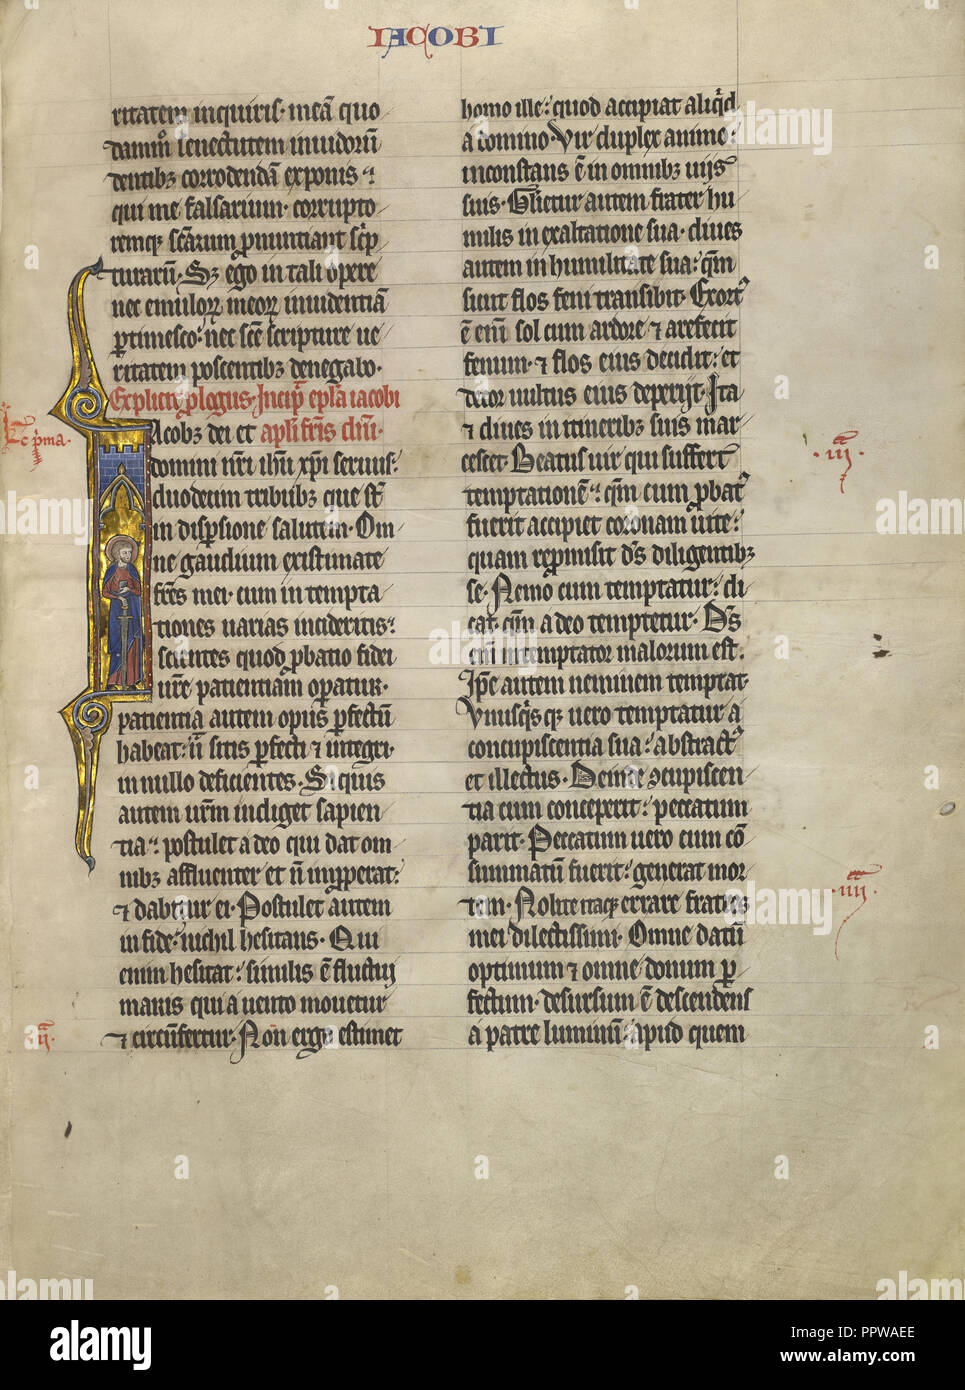 IACOBI
ritatem inquiris· meā quo
dam̄m̊ senectutem inuidorū
dentibꝫ corrodendā exponis ⁊
qui me falsarium· corrupto
remqꝫ sc̄arum ꝓnuntiant sc̄ᵖ
turarū· Sꝫ ego in tali opere
nec emuloꝝ meoꝝ inuidentiā
ꝑtimesco: nec sc̄e scripture ue
ritatem poscentibꝫ denegabo·
Explicit ꝓlogus· Incip̄ ep̄la iacobi
apl̄i fr̄is dn̄i·
Iacobꝫ dei et
domini nr̄i ih̄u xp̄i seruus:
duodecim tribubꝫ que sr̄
in dispersione salutem· Om
ne gaudium existimate
fr̄es mei· cum in tempta
tiones uarias incideritis:
scientes quod ꝓbatio fidei
ur̄e patientiam oꝑatur·
patientia autem opus ꝑfectū
habeat: ū sitis ꝑfecti ⁊ integri·
in nullo deficientes· Si quis
autem ur̄m indiget sapien
tia: postulet a deo qui dat om
nibꝫ affluenter et n̄ inꝓperat:
⁊ dabitur ei· Postulet autem
in fide: nichil hesitans· Qui
enim hesitat: similis ē fluctuj
maris qui a uento mouetur
⁊ circūfertur· Non ergo estimet
homo ille: quod accipiat aliq̄d
a domino· Vir duplex anime:
inconstans ē in omnibꝫ uijs
suis· Glietur autem frater hu
milis in exaltatione sua· diues
autem in humilitate sua: qm̄
sicut flos feni transibit· Exort᷒
ē eni᷒ sol cum ardore ⁊ arefecit
fenum· ⁊ flos eius decidit: et
decor uultus eius deperijt· Ita
⁊ diues in itineribꝫ suis mar
cescet· Beatus uir qui suffert
temptationē: qm̄ cum ꝓbat᷒
fuerit accipiet coronam uite:
quam repromisit d̄s diligentibꝫ
se· Nemo cum temptatur: di
cat· qm̄ a deo temptetur· D̄s
eni᷒ intemptator malorum est·
Ip̄e autem neminem temptat·
Vnusq̇sqꝫ uero temptatur a
concupiscentia sua: abstract᷒
et illectus· Deinde ꝯcupiscen
tia cum conceperit: peccatum
parit· Peccatum uero cum cō
summatū fuerit: generat mor
tem· Nolite itaqꝫ errare fratres
mei dilectissimi· Omne datū
optimum ⁊ omne donum ꝑ
fectum· desursum ē descendens
a patre luminū: apud quem
ec p̄ma·
·ii·
·iii·
·iiii·
alamy
alamy
Image ID: PPWAEE
www.alamy.com